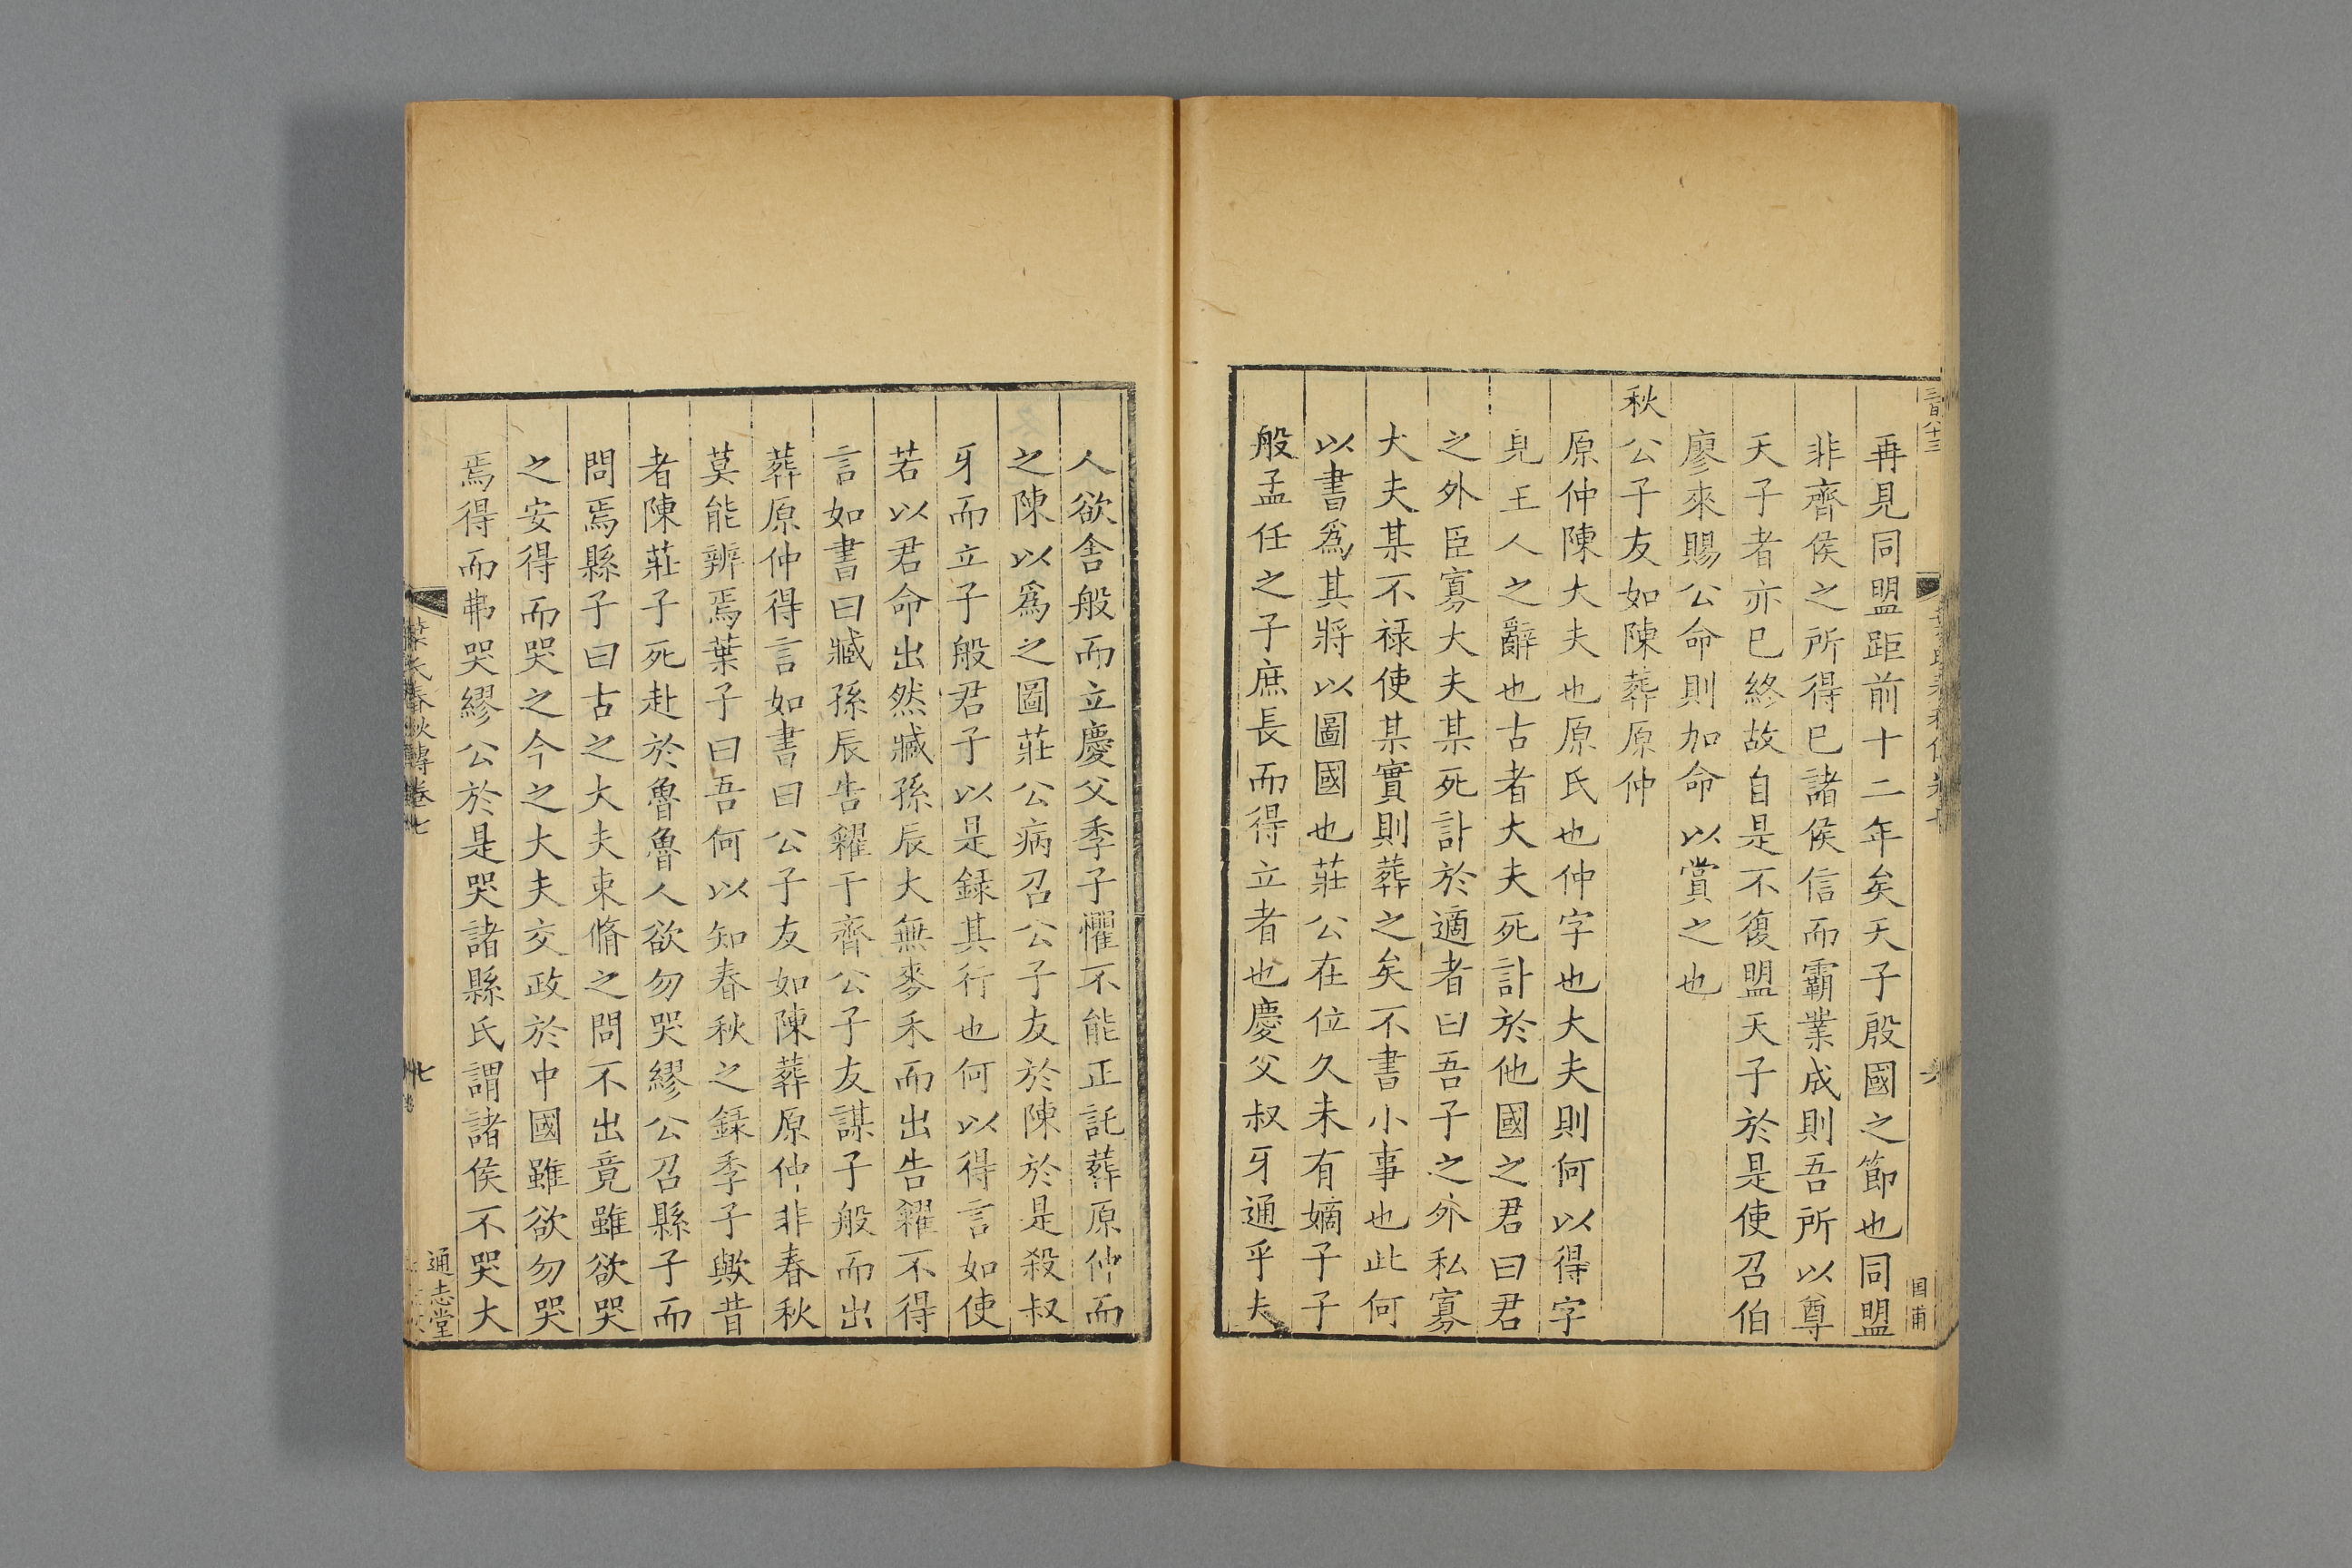 三百八十三
再見同盟距前十二年矣天子殷國之節也同盟
非齊侯之所得已諸侯信而霸業成則吾所以尊
天子者亦已終故自是不復盟天子於是使召伯
廖來賜公命則加命以賞之也
秋公子友如陳葬原仲
原仲陳大夫也原氏也仲字也大夫則何以得字
見王人之辭也古者大夫死訃於他國之君曰君
之外臣寡大夫某死訃於適者曰吾子之外私寡
大夫某不祿使某實則葬之矣不書小事也此何
以書爲其將以圖國也莊公在位久未有嫡子子
般孟任之子庶長而得立者也慶父叔牙通乎夫
人欲舍般而立慶父季子懼不能正託葬原仲而
之陳以爲之圖莊公病召公子友於陳於是殺叔
牙而立子般君子以是録其行也何以得言如使
若以君命出然臧孫辰大無麥禾而出告糴不得
言如書曰臧孫辰告糴于齊公子友謀子般而出
葬原仲得言如書曰公子友如陳葬原仲非春秋
莫能辨焉葉子曰吾何以知春秋之録季子歟昔
者陳莊子死赴於魯魯人欲勿哭繆公召縣子而
問焉縣子曰古之大夫束脩之問不出竟雖欲哭
之安得而哭之今之大夫交政於中國雖欲勿哭
焉得而弗哭繆公於是哭諸縣氏謂諸侯不哭大
葉氏春秋傳卷七
七
通志堂